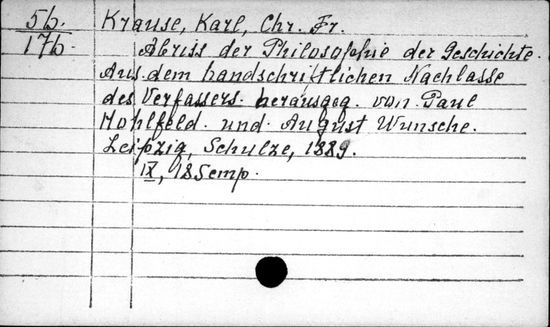 5b. Krause, Karl, Chr. Fr.
17b. Abriss der Philosophie der Geschichte.
Aus dem handschriftlichen Nachlasse
des Verfassers herausgeg. von Paul
Hohlfeld und August Wunsche.
Leipzig, Schulze, 1889.
IX, 185 emp.